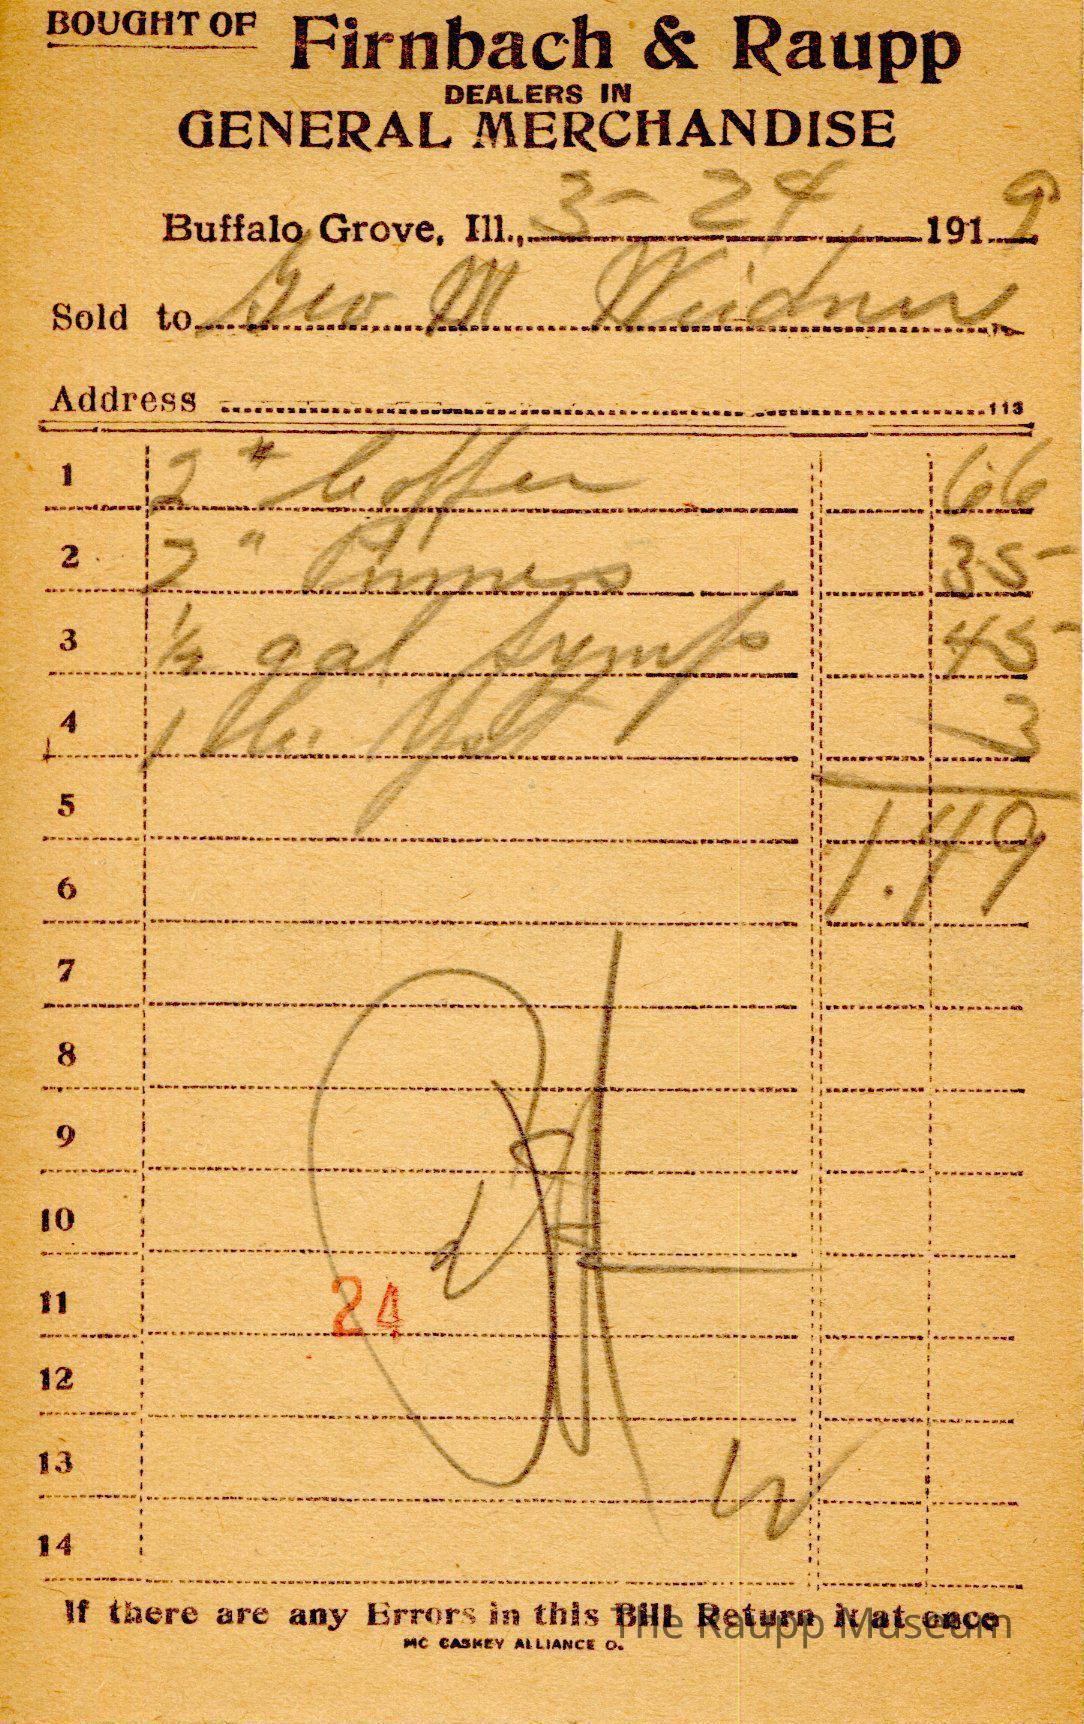 BOUGHT OF Firnbach & Raupp
DEALERS IN
GENERAL MERCHANDISE
Buffalo Grove, Ill., 3-24 1919
Sold to Geo M Weidner
Address 113
1 2 # Coffee 66
2 2 " Prunes 35
3 ½ gal Syrup 45
4 1 3
5 1.49
6
7
8
9
10
11 24
12
13 W
14
If there are any Errors in this Bill Return it at once
MC CASKEY ALLIANCE O.
The Raupp Museum